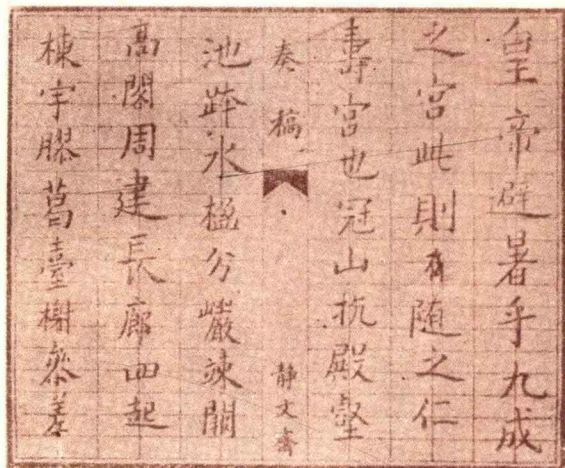 皇帝避暑乎九成
之宮此則有随之仁
壽宮也冠山抗殿壑
奏稿
静文斋
池跨水楹分巖竦闕
高閣周建長廊四起
棟宇膠葛臺榭叅差